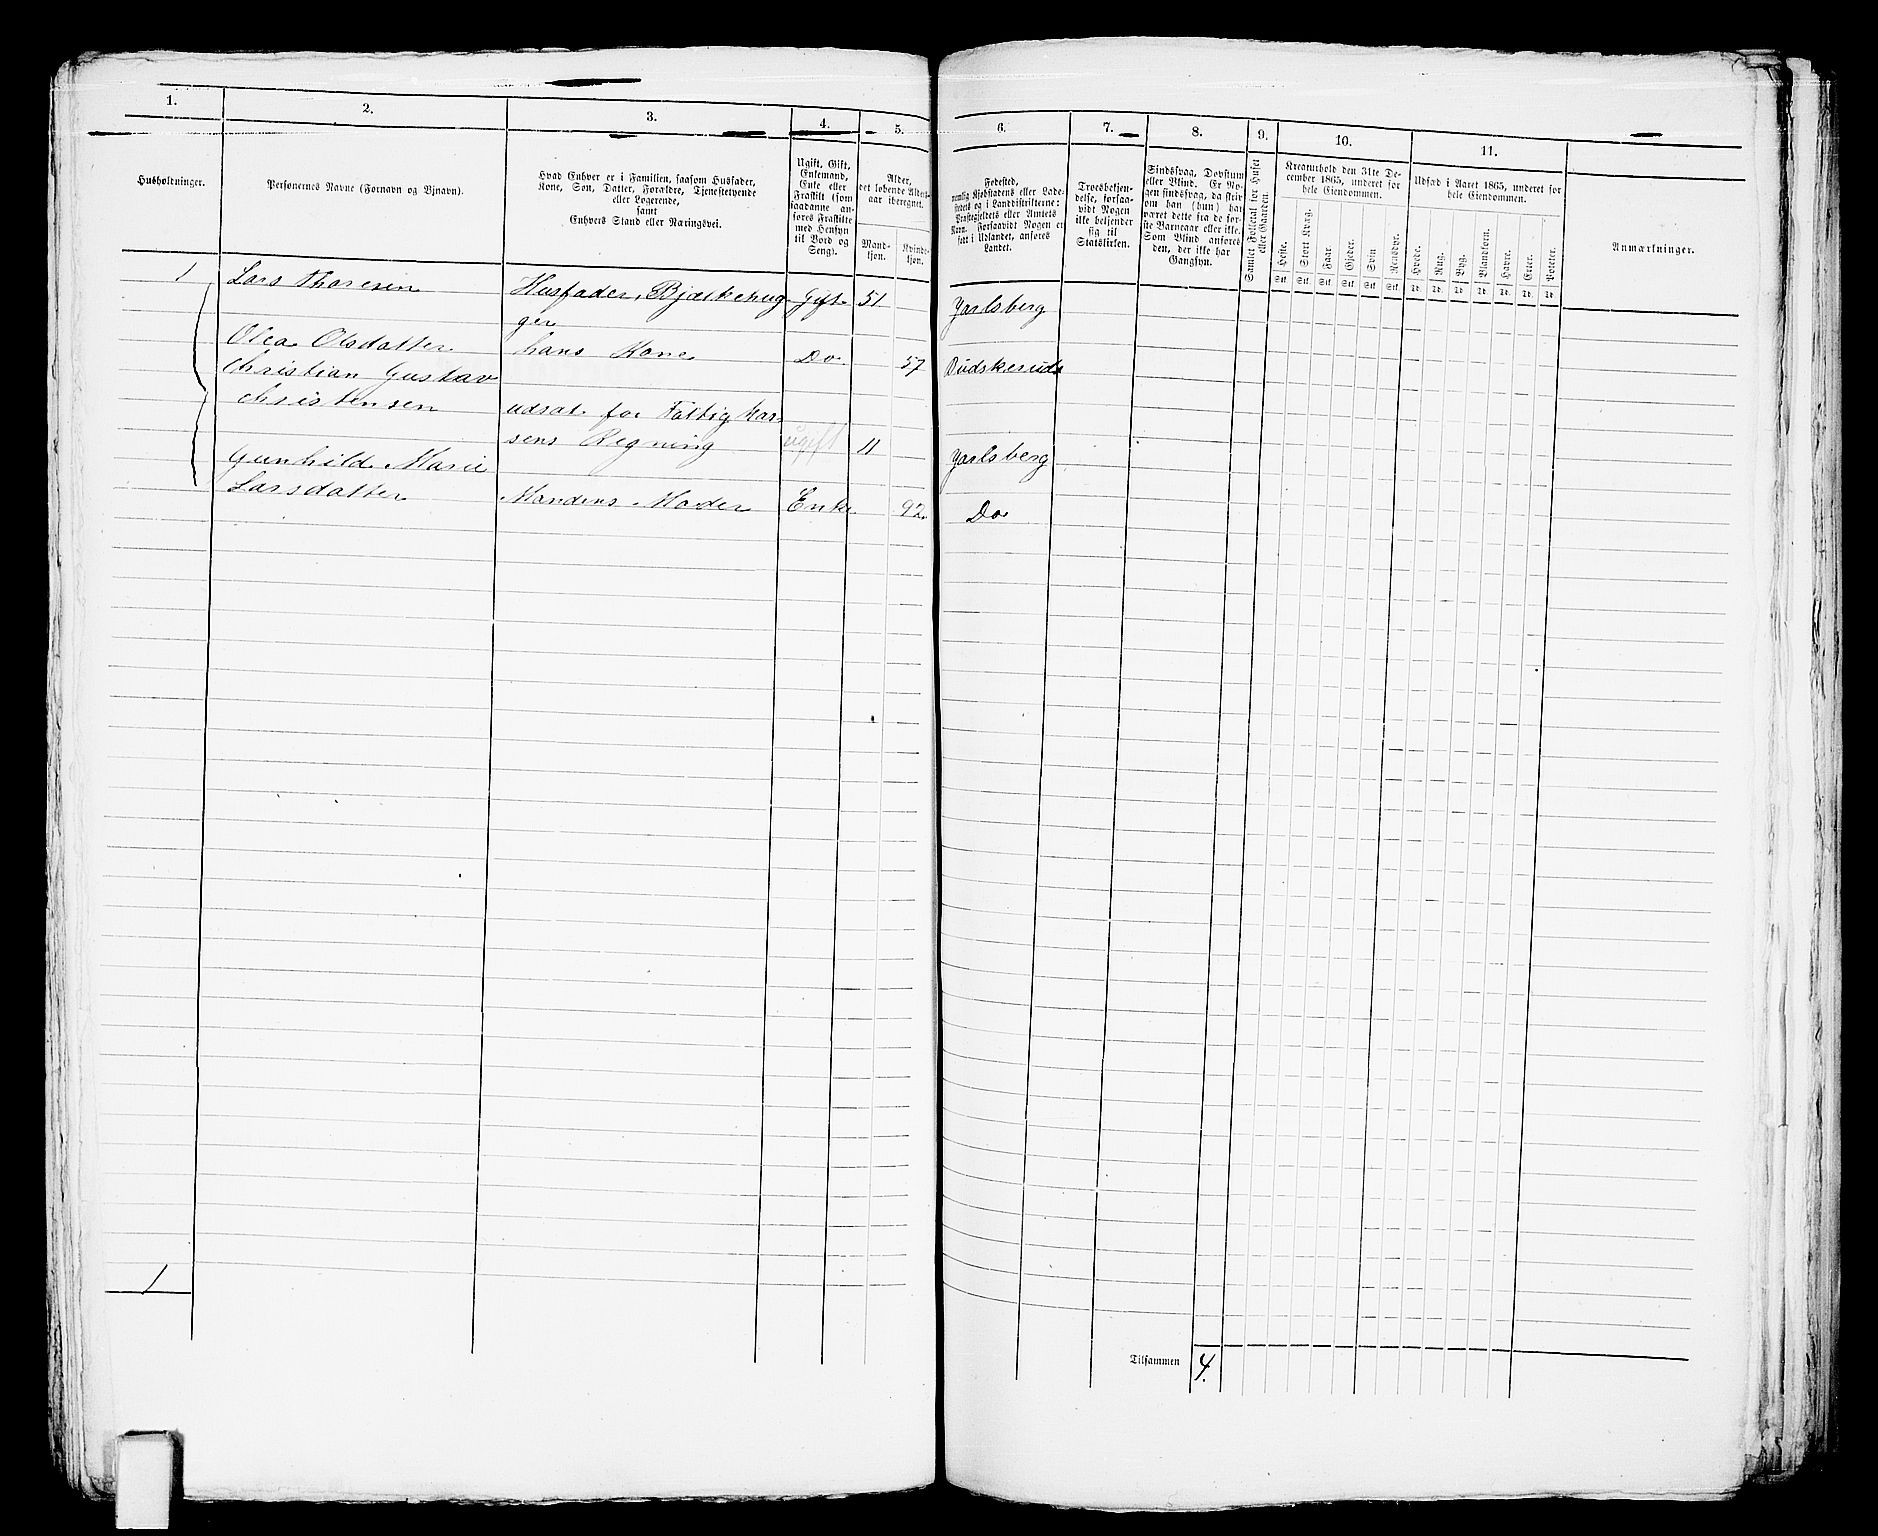 1.
2.
3.
4.
5.
Husholdninger.
Personernes Navne (Fornavn og Binavn).
Hvad Enhver er i Familien, saasom Husfader,
Kone, Søn, Datter, Forældre, Tjenestetyende
eller Logerende,
samt
Enhvers Stand eller Næringsvei.
Ugift, Gift,
Enkemand,
Enke eller
Fraskilt (som
saadanne an-
føres Fraskilte
med Hensyn
til Bord og
Seng).
Alder,
det løbende Alders-
aar iberegnet.
Mand-
kjøn.
Kvinde-
kjøn.
1 Lars Thoresen Husfader, Bjælkehug- Gift 51
ger
Olea Olsdatter hans Kone Do 57
Christian Gustav
Christensen udsat for Fattigkas-
sens Regning ugift 11
Gunhild Marie
Larsdatter Mandens Moder Enke 92
1
6.
7.
8.
9.
10.
11.
Fødested,
nemlig Kjøbstadens eller Lade-
stedets og i Landdistrikterne:
Præstegjeldets eller Amtets
Navn. Forsaavidt Nogen er
født i Udlandet, anføres
Landet.
Troesbekjen-
delse, forsaa-
vidt Nogen
ikke bekjender
sig til
Statskirken.
Sindssvag, Døvstum
eller Blind. Er No-
gen sindssvag, da skriv
om han (hun) har
været dette fra de før-
ste Barneaar eller ikke.
Som Blind anføres
den, der ikke har
Gangsyn.
Samlet Folketal for Huset
eller Gaarden.
Kreaturhold den 31te De-
cember 1865, underet for
hele Eiendommen.
Heste.
Stort Kvæg.
Faar.
Gjeder.
Svin
Rensdyr.
Stk. Stk. Stk. Stk. Stk. Stk.
Udsæd i Aaret 1865, underet for
hele Eiendommen.
Hvede.
Rug.
Byg.
Blandkorn.
Havre.
Erter.
Poteter.
Td. Td. Td. Td. Td. Td. Td.
Anmærkninger.
Jarlsberg
Budskeruds
Jarlsberg
Do
Tilsammen 4.